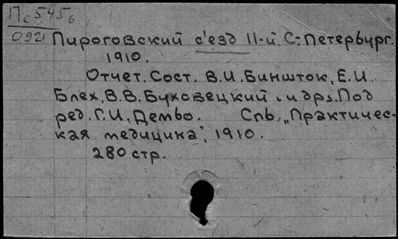 Пс545б
0921 Пироговский с'езд II-й. С.-Петербург.
1910.
Отчет. Сост. В.И. Биншток, Е.И.
Блех, В.В. Буховецкий и др. Под
ред. Г.И. Дембо. Спб. „Практичес-
кая медицина", 1910.
280 стр.